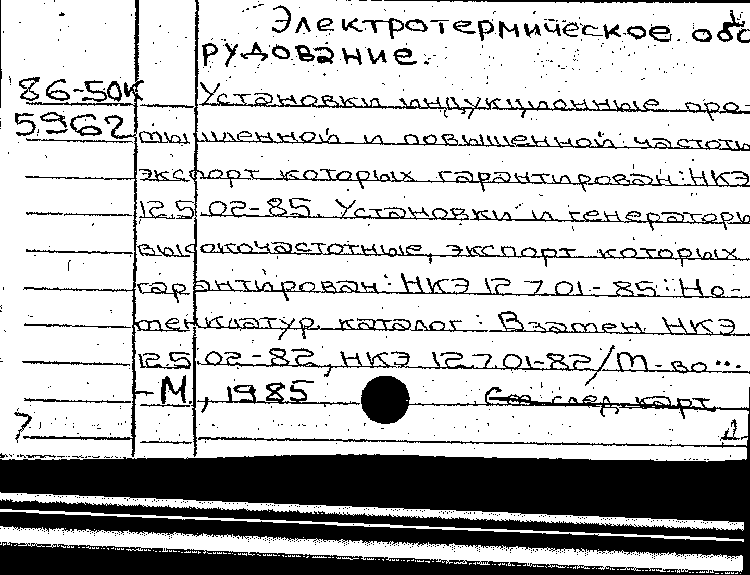 Электротермическое обо
рудование.
86-50К Установки индукционные про-
5962 мышленной и повышенной частоты
экспорт которых гарантирован: НКЭ
12.5.02-85. Установки и генераторы
высокочастотные, экспорт которых
гарантирован: НКЭ 12.7.01-85: Но-
менклатур. каталог: Взамен НКЭ
12.5.02-82, НКЭ 12.7.01-82/М-во...
-М, 1985 См след. карт
7 Д